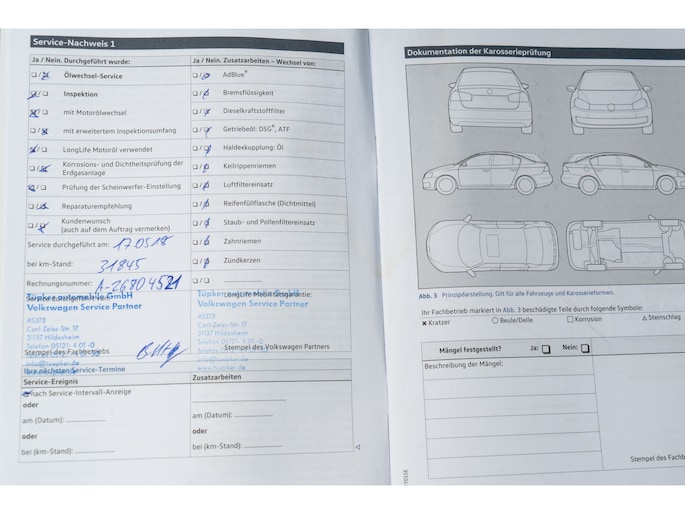 Service-Nachweis 1
Ja / Nein. Durchgeführt wurde:
Ölwechsel-Service
Inspektion
mit Motorölwechsel
mit erweitertem Inspektionsumfang
LongLife Motoröl verwendet
Korrosions- und Dichtheitsprüfung der
Erdgasanlage
Prüfung der Scheinwerfer-Einstellung
Reparaturempfehlung
Kundenwunsch
(auch auf dem Auftrag vermerken)
Service durchgeführt am: 17.05.18
bei km-Stand: 31845
Rechnungsnummer: A-26804521
Tüpker automobile GmbH
Volkswagen Service Partner
45373
Carl-Zeiss-Str. 17
31137 Hildesheim
Telefon 05121-4 01-0
Stempel des Fachbetriebs
Ihre nächsten Service-Termine
Service-Ereignis
nach Service-Intervall-Anzeige
oder
am (Datum):
oder
bei (km-Stand):
Ja / Nein. Zusatzarbeiten – Wechsel von:
AdBlue®
Bremsflüssigkeit
Dieselkraftstofffilter
Getriebeöl: DSG®, ATF
Haldexkupplung: Öl
Keilrippenriemen
Luftfiltereinsatz
Reifenfüllflasche (Dichtmittel)
Staub- und Pollenfiltereinsatz
Zahnriemen
Zündkerzen
LongLife Mobilitätsgarantie:
Volkswagen Service Partner
45373
Carl-Zeiss-Str. 17
31137 Hildesheim
Telefon 05121-4 01-0
Stempel des Volkswagen Partners
Zusatzarbeiten
am (Datum):
oder
bei (km-Stand):
Dokumentation der Karosserieprüfung
Abb. 3 Prinzipdarstellung. Gilt für alle Fahrzeuge und Karosserieformen.
Ihr Fachbetrieb markiert in Abb. 3 beschädigte Teile durch folgende Symbole:
x Kratzer ○ Beule/Delle □ Korrosion △ Steinschlag
Mängel festgestellt? Ja: Nein:
Beschreibung der Mängel:
Stempel des Fachb